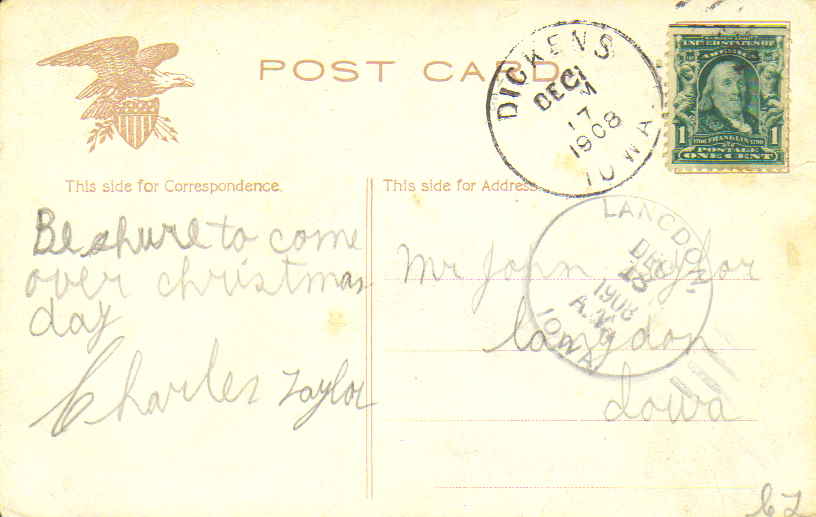 POST CARD
DICKENS
DEC
M
17
1908
IOWA
UNITED STATES OF
AMERICA
1 FRANKLIN 1
POSTAGE
ONE CENT
This side for Correspondence.
This side for Address
Be shure to come
over christmas
day
Charles Taylor
LANGDON,
DEC
18
1908
A.M.
IOWA
Mr John Taylor
Langdon
Iowa